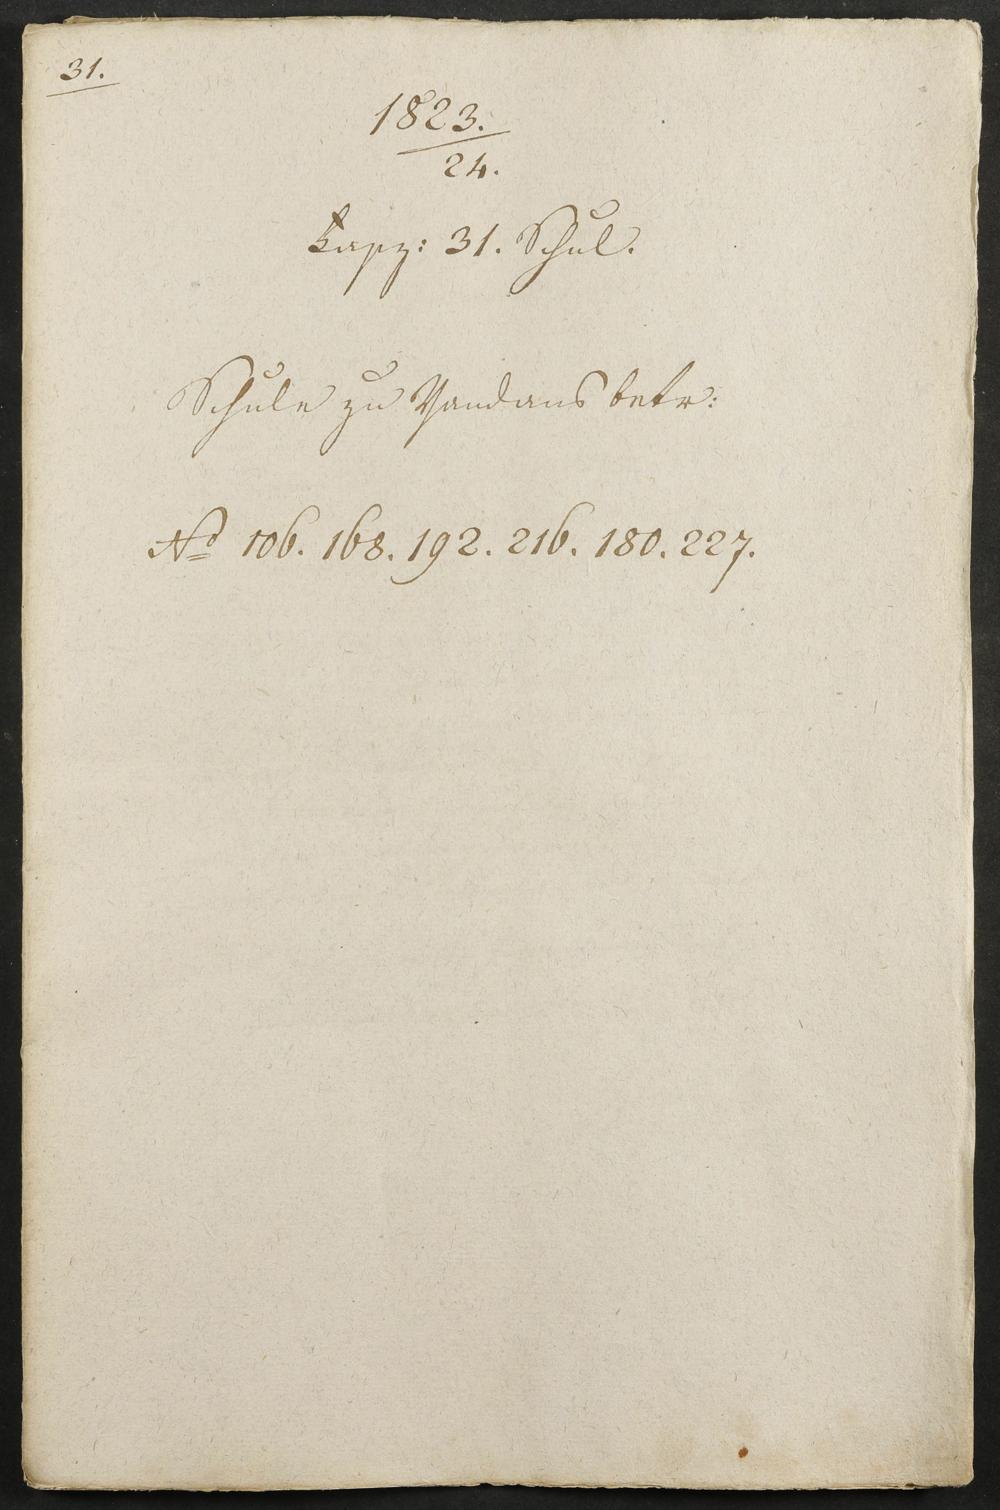 31.
1823.
24.
Fasz: 31. Schul.
Schule zu Vandans betr:
No 106. 168. 192. 216. 180. 227.